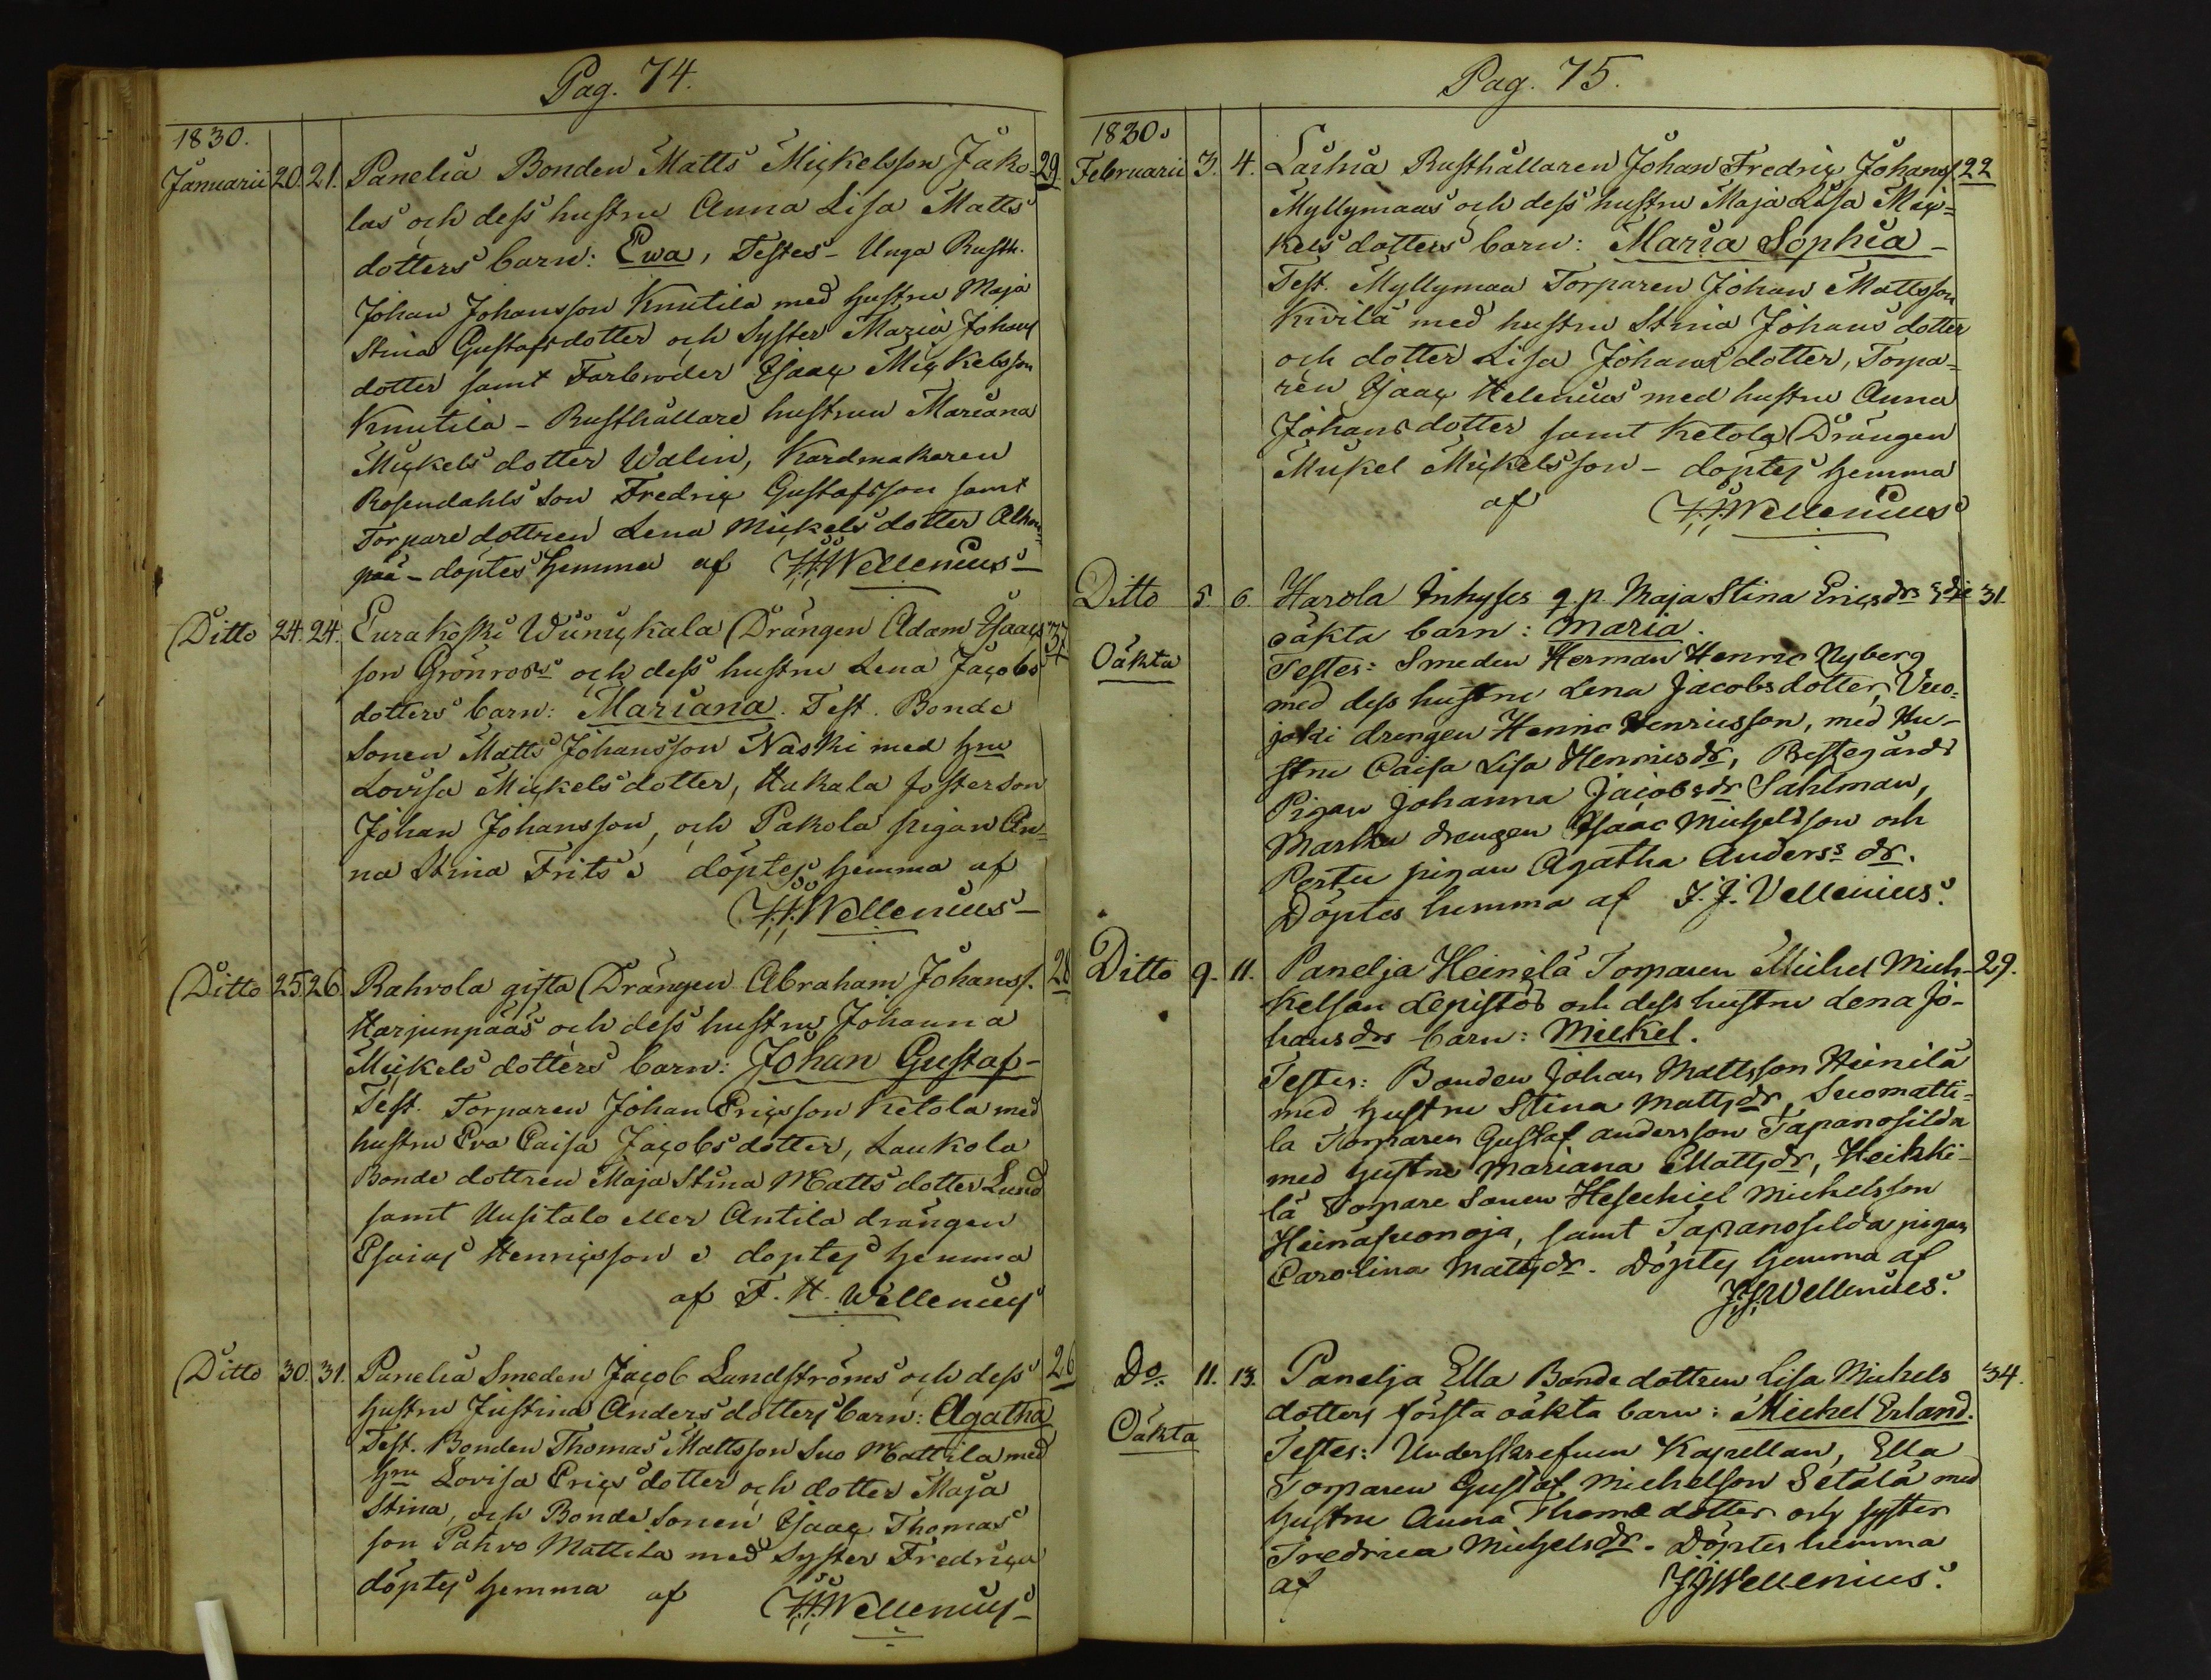 Pag. 74.
1830.
Januarii 20. 21. Panelia Bonden Matts Mickelsson Jako= 29.
las och dess hustru Anna Lisa Matts
dotters barn: Ewa, Testes - Unga Rusth.
Johan Johansson Knutila med hustru Maja
Stina Gustafsdotter och Syster Maria Johans
dotter samt Farbroder Isaac Mickelsson
Knutila - Rusthållare hustrun Mariana
Mickels dotter Walin, Kardmakaren
Rosendahls son Fredric Gustafsson samt
Torpare dottren Lena Mickels dotter Alhon=
pää - döptes hemma af Wellenius
Ditto 24. 24. Eurakoski Wünickala Drängen Adam Isaacs 37
son Grönroos och dess hustru Lena Jacobs
dotters barn: Mariana. Test. Bonde
Sonen Matts Johansson Näski med hru
Lovisa Mickels dotter, Hakala fosterson
Johan Johansson, och Pakola pigan An=
na Stina Frits döptes hemma af
Wellenius
Ditto 25 26 Rahvola gifta Drängen Abraham Johanss. 28
Harjunpääs och dess hustru Johanna
Mickels dotters barn: Johan Gustaf -
Test. Torparen Johan Ericsson Ketola med
hustru Eva Caisa Jacobs dotter, Laukola
Bonde dottren Maja Stina Matts dotter Lund
samt Uusitalo eller Antila drängen
Esaias Henricsson döptes hemma
af F. H. Wellenius
Ditto 30. 31. Panelia Smeden Jacob Lundströms och dess 26
hustru Justina Anders dotters barn: Agatha
Test. Bonden Thomas Mattsson Suo Mattila med
hru Lovisa Erics dotter och dotter Maja
Stina, och Bonde Sonen Isaac Thomas
son Pahvo Mattila med Syster Fredrica
döptes hemma af Wellenius
Pag. 75.
1830.
Februarii 3. 4. Laihia Rusthållaren Johan Fredric Johanss 22
Myllymaas och dess hustru Maja Lisa Mic=
kels dotters barn: Maria Sophia -
Test. Myllymaa Torparen Johan Mattsson
Kivilä med hustru Stina Johans dotter
och dotter Lisa Johans dotter, Torpa=
ren Isaac Helenius med hustru Anna
Johans dotter samt Ketola Drängen
Mickel Mickelsson - döptes hemma
af Wellenius
Ditto 5. 6. Harola Inhyses q. p. Maja Stina Ericsdrs 31.
Oäkta
oäkta barn: Maria.
Testes: Smeden Herman Henric Nyberg
med dess hustru Lena Jacobsdotter, Vuo=
joki drengen Henric Henricsson, med Hu-
stru Caisa Lisa Henricsdr, Prestegårds
Pigan Johanna Jacobsdr Sahlman,
Marttu drengen Isaac Michelsson och
Perttu pigan Agatha Anderss dr.
Döptes hemma af J. J. Vellenius.
Ditto 9. 11. Panelja Heinilä Torparen Mickel Mich- 29.
kelson Lepistös och dess hustru Lena Jo-
hansdrs barn: Mickel.
Testes: Bonden Johan Mattsson Heinilä
med hustru Stina Mattsdr, Suomatti=
la Torparen Gustaf andersson Tapanosilda
med hustru Mariana Mattsdr, Heikki-
lä Torpare Sonen Hesechiel Michelsson
Heinäsuonoja, samt Tapanosilda pigan
Carolina Mattsdr. Döptes hemma af
JJWellenius.
Do. 11. 13. Panelja Ella Bonde dottren Lisa Michels 34.
Oäkta
dotters första oäkta barn: Michel Erland.
Testes: Underskrefven Kapellan, Ella
Torparen Gustaf Michelson Setälä med
hustru Anna Thomæ dotter och syster
Fredrica Michelsdr. Döptes hemma
af JJWellenius.